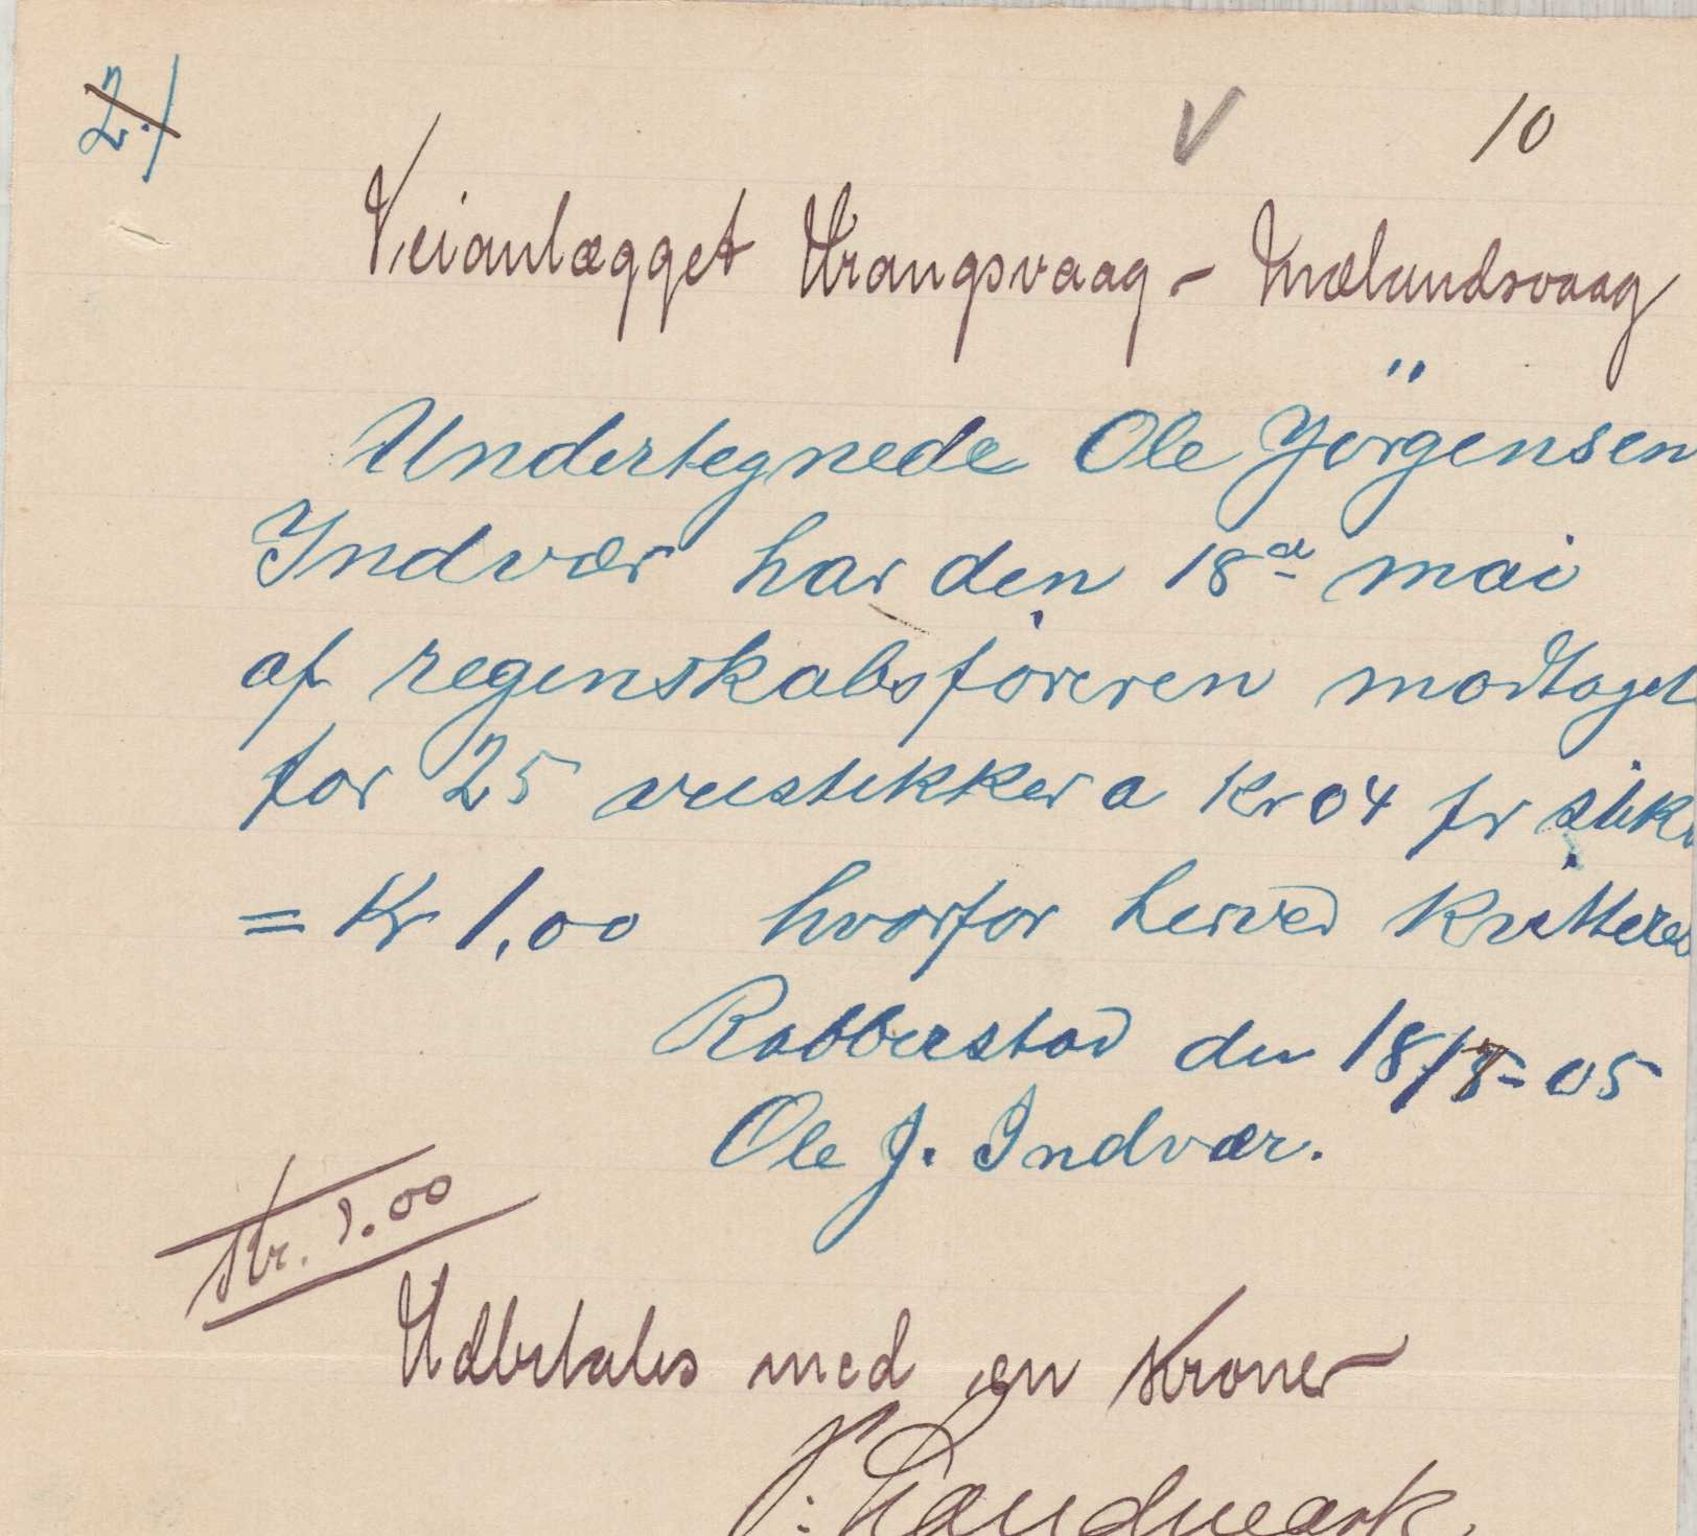 2./
V 10
Veianlægget Vrangsvaag - Mælandsvaag
Undertegnede Ole Jörgensen
Indvær har den 18de mai
af regenskabsføreren modtaget
for 25 veistikker a Kr 04 pr stik
= Kr 1,00 hvorfor herved kvitteres
Rabberstad den 18/5-05
Ole J. Indvær.
Kr. 1.00
Udbetales med en kroner